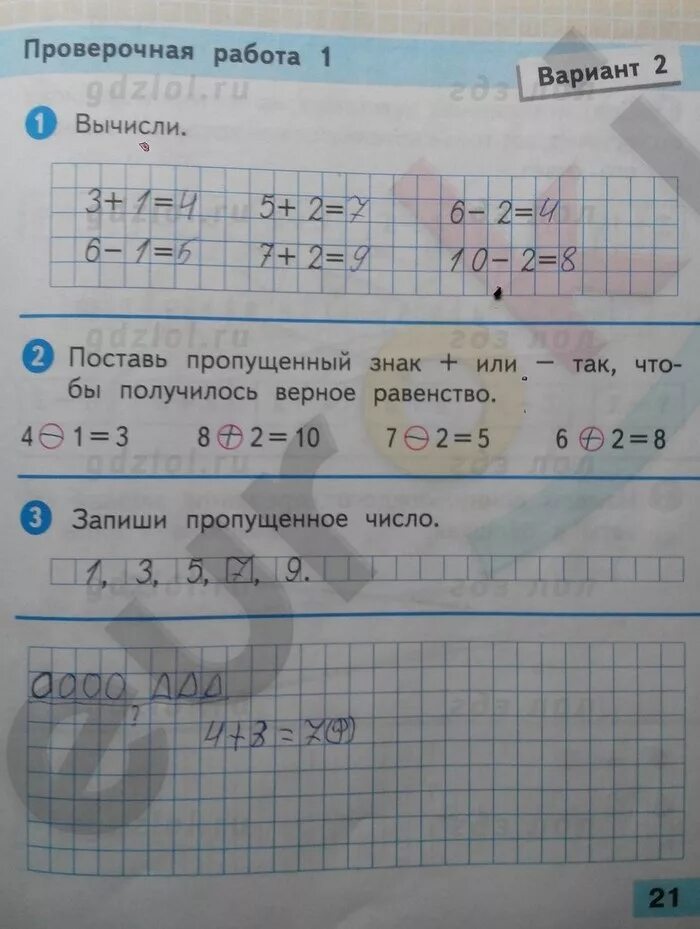 Проверочная работа 1
Вариант 2
gdzlol.ru
гдз лол
1 Вычисли.
3+1=4 5+2=7 6-2=4
6-1=5 7+2=9 10-2=8
gdzlol.ru
гдз лол
2 Поставь пропущенный знак + или — так, что-
бы получилось верное равенство.
4 - 1=3 8 + 2=10 7 - 2=5 6 + 2=8
gdzlol.ru
гдз лол
3 Запиши пропущенное число.
1, 3, 5, 7, 9.
?
4+3=7(ф)
21
euro